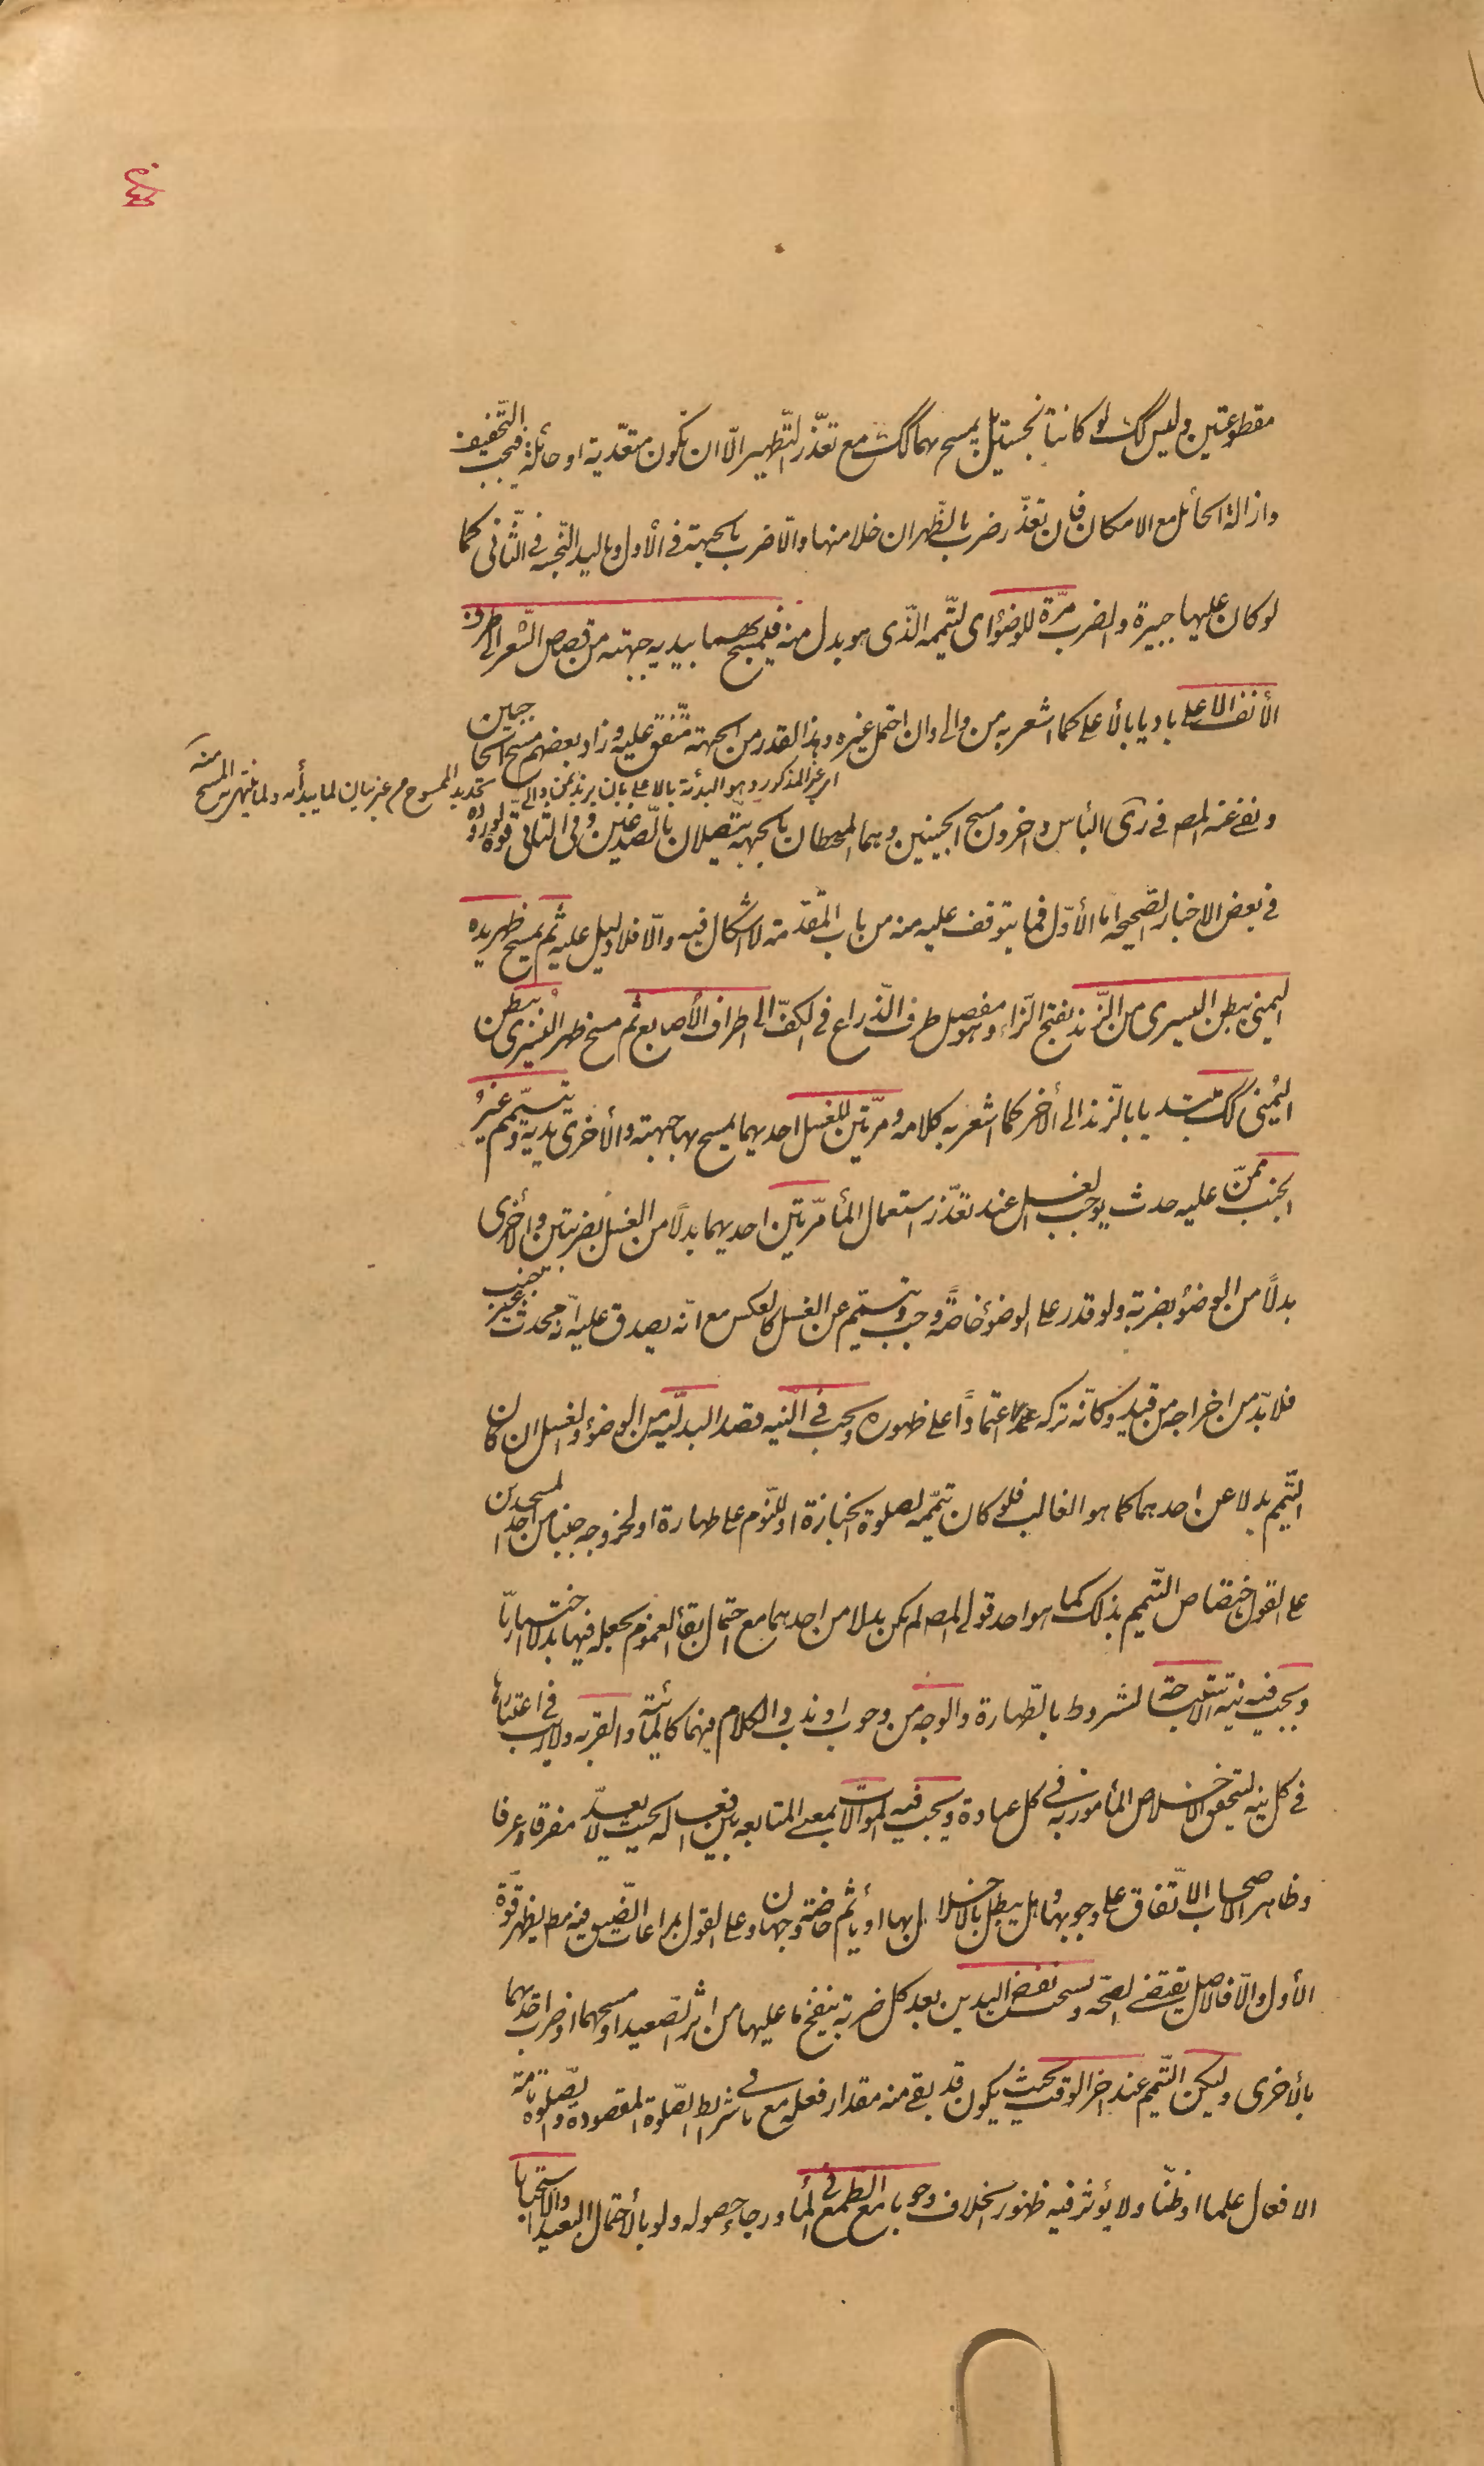 مقطوعتين وليس كك لو كانتا نجستين يمسح بهما كك مع تعذّر التّطهير الّا ان تكون متعدّية او حائلة فيجب التّخفيف
وازالة الحائل مع الامكان فان تعذّر ضرب بالظّهر ان خلا منها والّا ضرب بالجبهة فى الأول وباليد النّجسة فى الثّانى كما
لو كان عليها جبيرة والضرب مرّة للوضوء اى لتيمّمه الّذى هو بدل منه فيمسح بهما بيديه جبهته من قصاص الشّعر الى طرف
الأنف الاعلى باديا بالأعلى كما اشعر به من والى وان احتمل غيره وهذا القدر من الجبهة متّفق عليه وزاد بعضهم مسح الحاجبين
اى غير المذكور وهو البدئة بالاعلى بان يريد بمن والى تحديد الممسوح من غير بيان لما يبدأ به ولما ينتهى به المسح منه
ونفى عنه المص فى ذكرى البأس واخرون مسح الجبينين وهما المحيطان بالجبهة يتّصلان بالصّدغين وفى الثانى قوّة لوروده
فى بعض الاخبار الصّحيحة امّا الأوّل فما يتوقف عليه منه من باب المقدّمة لا اشكال فيه والّا فلا دليل عليه ثم يمسح ظهر يده
اليمنى ببطن اليسرى من الزّند بفتح الزّاء وهو مفصل طرف الذّراع فى الكفّ الى اطراف الأصابع ثم مسح ظهر اليسرى ببطن
اليمنى كك مبتديا بالزّند الى الأخر كما اشعر به كلامه ومرّتين للغسل احديهما يمسح بها جبهته والأخرى يديه ويتيمّم غير
الجنب ممّن عليه حدث يوجب الغسل عند تعذّر استعمال المأ مرّتين احديهما بدلًا من الغسل بضربتين والأخرى
بدلًا من الوضؤ بضربة ولو قدر على الوضؤ خاصّة وجب وتيمّم عن الغسل كالعكس مع انّه يصدق عليه انّه محدث غير جنب
فلا بدّ من اخراجه من قيد وكانّه تركه اعتمادًا على ظهوره ويجب فى النيّة قصد البدليّة من الوضؤ والغسل ان كان
التّيمم بدلا عن احدهما كما هو الغالب فلو كان تيمّمه لصلوة الجنازة او للنّوم على طهارة او لخروجه جنبا من احد المسجدين
على القول باختصاص التّيمم بذلك كما هو احد قولى المص لم يكن بدلا من احدهما مع احتمال بقأ العموم بجعله فيها بدلا اختياريّا
ويجب فيه نيّة استباحة المشروط بالطّهارة والوجه من وجوب او ندب والكلام فيهما كالمائيّة والقربة ولا ريب فى اعتبارها
فى كل نيّة ليتحقق الاخلاص المأمور به فى كل عبادة ويجب فيه الموالات بمعنى المتابعة بين افعاله بحيث لا يعدّ مفرقا عرفا
وظاهر الاصحاب الاتّفاق على وجوبها وهل يبطل بالاخلال بها او يأثم خاصّة وجهان وعلى القول بمراعات الضّيق فيه مط يظهر قوّة
الأول والّا فالاصل يقتضى الصّحّة ويستحب نفض اليدين بعد كل ضربة بنفخ ما عليهما من اثر الصّعيد او مسحهما او ضرب احديهما
بالأخرى وليكن التّيمم عند اخر الوقت بحيث يكون قد بقى منه مقدار فعله مع باقى شرايط الصّلوة المقصودة والصّلوة تامّة
الافعال علما او ظنّا ولا يؤثر فيه ظهور الخلاف وجوبا مع الطمع فى المأ ورجاء حصوله ولو بالأحتمال البعيد والّا استحبابا